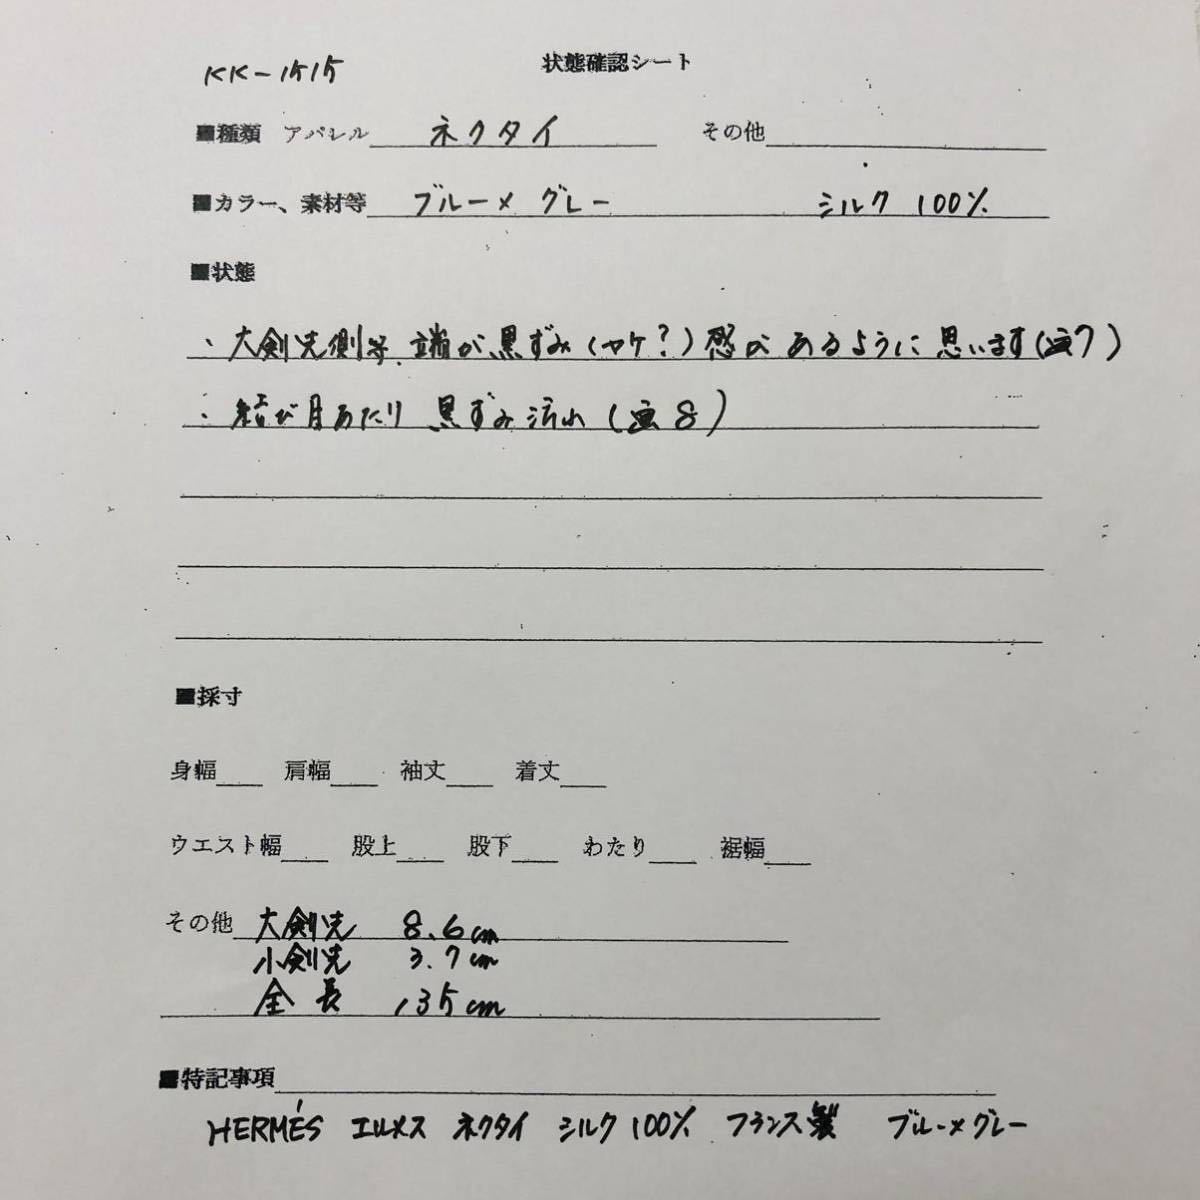 KK-1515
状態確認シート
■種類 アパレル ネクタイ その他
■カラー、素材等 ブルーメグレー シルク 100%
■状態
・大剣先側等 端が黒ずみ(ヤケ?)感が あるように 思います(画7)
・結び目あたり 黒ずみ汚れ(画8)
■採寸
身幅 肩幅 袖丈 着丈
ウエスト幅 股上 股下 わたり 裾幅
その他 大剣先 8.6cm
小剣先 3.7cm
全長 135cm
■特記事項
HERMÉS エルメス ネクタイ シルク 100% フランス製 ブルーメグレー